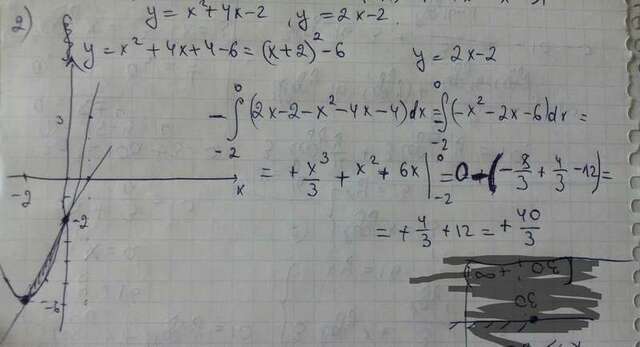 2) y = x² + 4x - 2 , y = 2x - 2
y = x² + 4x + 4 - 6 = (x + 2)² - 6 y = 2x - 2
- ∫₋₂⁰ (2x - 2 - x² - 4x - 4) dx = ∫₋₂⁰ (-x² - 2x - 6) dx =
= + x³/3 + x² + 6x |₋₂⁰ = 0 - (-8/3 + 4/3 - 12) =
= + 4/3 + 12 = + 40/3
3
-2
x
-2
-6
[30 ; +∞)
30